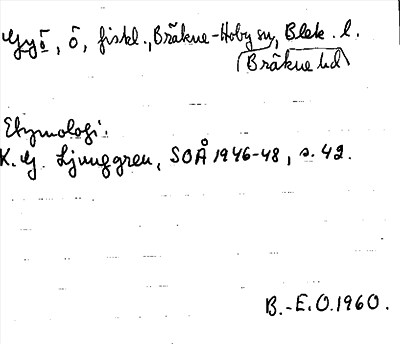 Gyö, ö, fiskl., Bräkne-Hoby sn, Blek. l.
Bräkne hd
Etymologi.
K. G. Ljunggren, SOÅ 1946-48, s. 42.
B.-E.O.1960.